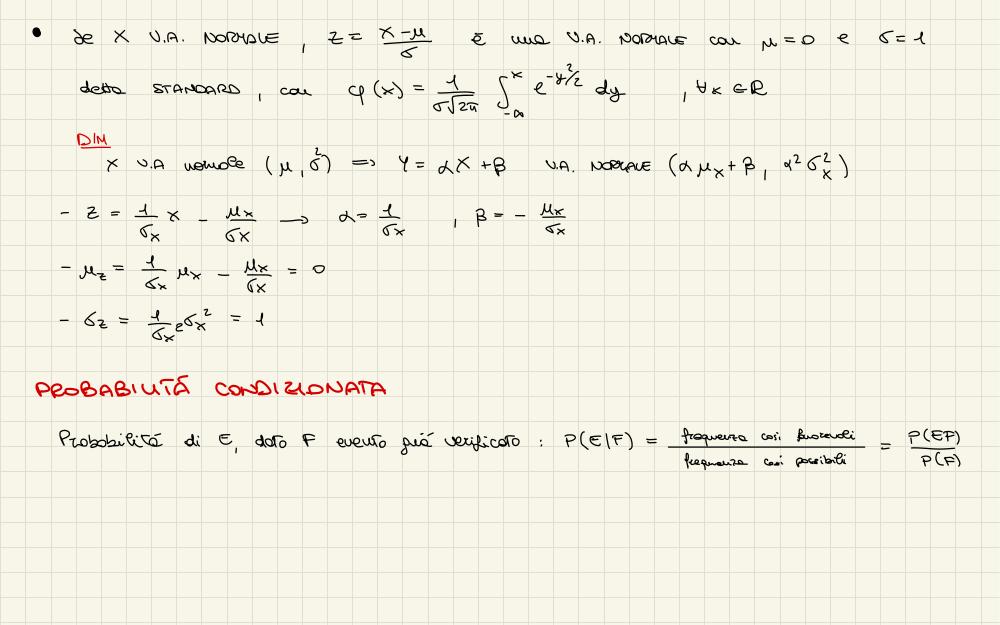 • Se X V.A. NORMALE , Z = (X-μ)/σ è una V.A. NORMALE con μ=0 e σ=1
detta STANDARD , con φ(x) = 1/(σ√2π) ∫_{-∞}^{x} e^{-y²/2} dy , ∀x ∈ R
DIM
X V.A normale (μ, σ²) => Y = αX + β V.A. NORMALE (αμ_x + β, α²σ_x²)
- Z = 1/σ_x X - μ_x/σ_x → α = 1/σ_x , β = - μ_x/σ_x
- μ_z = 1/σ_x μ_x - μ_x/σ_x = 0
- σ_z = 1/σ_x² σ_x² = 1
PROBABILITÀ CONDIZIONATA
Probabilità di E, dato F evento già verificato : P(E|F) = frequenza casi favorevoli / frequenza casi possibili = P(EF)/P(F)